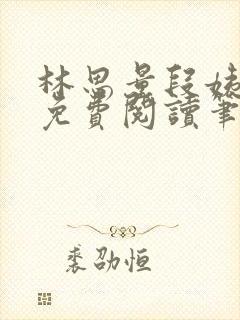 林思量段姨
免費閱讀筆
裘劭恒